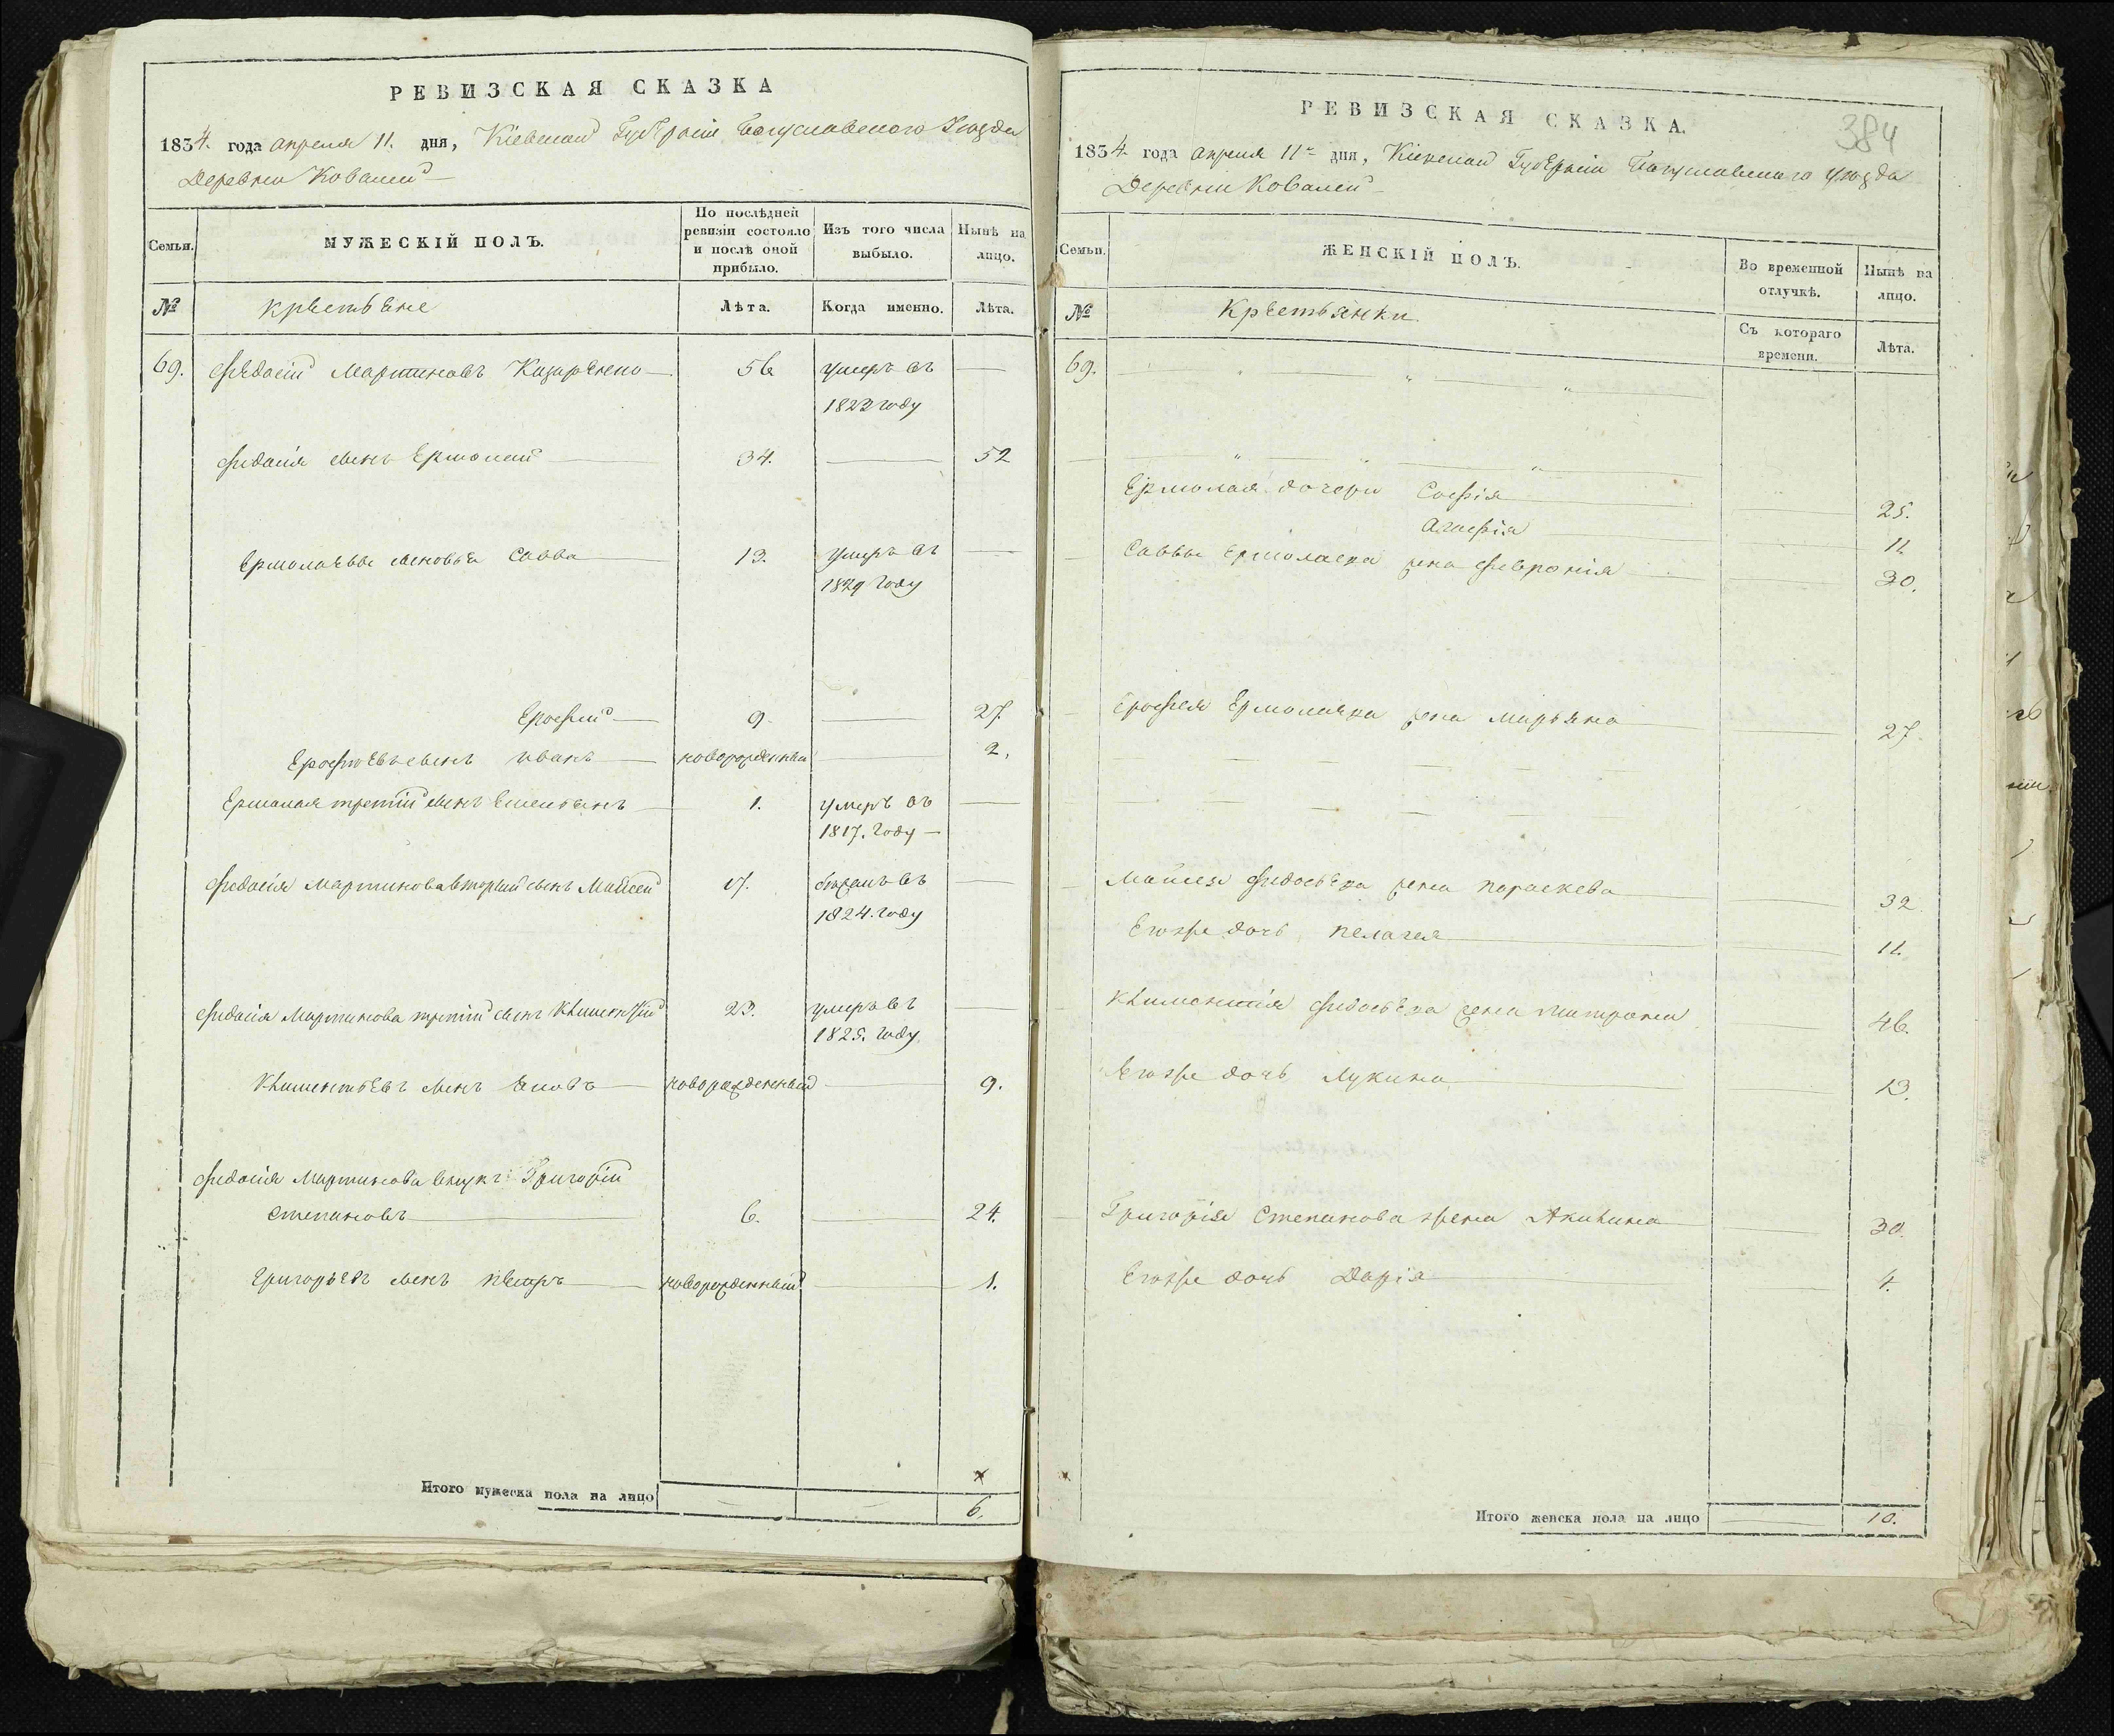 РЕВИЗСКАЯ СКАЗКА
1834. года апреля 11. дня, Кіевской Губерніи Богуславского Уезда
Деревни Ковалей
Семьи.
МУЖЕСКІЙ ПОЛЪ.
По послѣдней ревизіи состояло и послѣ оной прибыло.
Изъ того числа выбыло.
Нынѣ на лицо.
№
крестьяне
Лѣта.
Когда именно.
Лѣта.
69. Федосій Мартиновъ 56 умеръ въ
1823 году
Федосія сынъ Ермолай 34. 52
Ермолаевы сыновья Савва 13. умеръ въ
1829 году
Ерофей 9. 27.
Ерофѣевъ сынъ иванъ новорожденный 2.
Ермолая третій сынъ Емельянъ 1. умеръ въ
1817. году
Федосія Мартинова вторый сынъ Мойсей 17. въ
1824. году
Федосія Мартинова третій сынъ Климентій 23. умеръ въ
1825. году
Климентьевъ сынъ Яковъ новорожденный 9.
Федосія Мартинова внукъ Григорій
Степановъ 6. 24.
Григорьевъ сынъ петръ новорожденный 1.
Итого мужеска пола на лицо 6.
РЕВИЗСКАЯ СКАЗКА.
384
1834 года апреля 11 дня, Кіевской Губерніи Богуславского уезда
Деревни Ковалей
Семьи.
ЖЕНСКІЙ ПОЛЪ.
Во временной отлучкѣ.
Нынѣ на лицо.
№
Крестьянки
Съ котораго времени.
Лѣта.
69.
Ермолая дочери Софія 25.
Агафія 11.
Саввы Ермолаева жена Февронія 30.
Ерофея Ермолаева жена Марьяна 27.
Мойсея Федосѣева жена параскева 32
Егоже дочь пелагея 11.
Климентія Федосѣева жена матрона 46.
Егоже дочь Лукина 13.
Григорія Степанова жена Акилина 30.
Егоже дочь Дарія 4.
Итого женска пола на лицо 10.